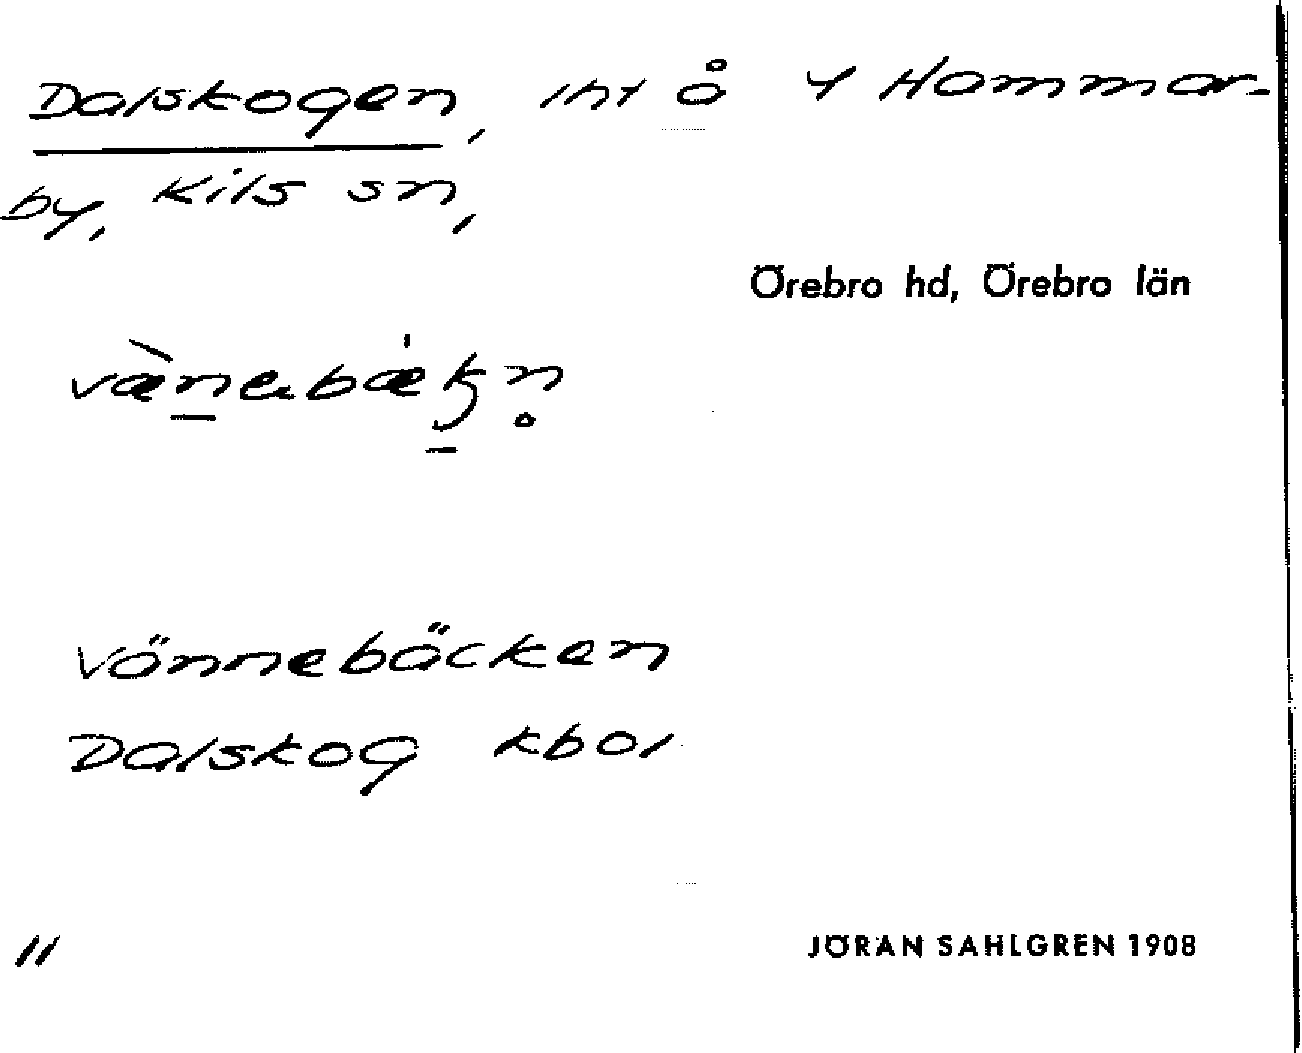 Dalskogen, int å Y Hammar-
by, Kils sn,
Örebro hd, Örebro län
vænebækn
Vännebäcken
Dalskog kbol
11
JÖRAN SAHLGREN 1908